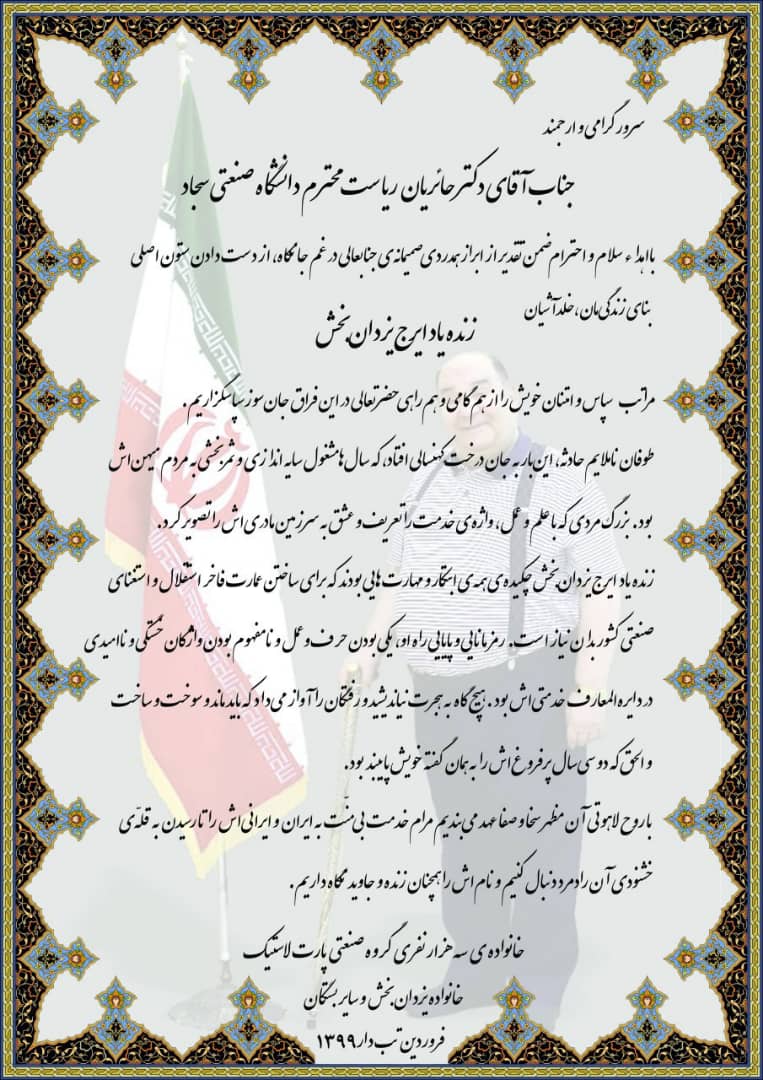 سرور گرامی و ارجمند
جناب آقای دکتر حائریان ریاست محترم دانشگاه صنعتی سجاد
با اهداء سلام و احترام ضمن تقدیر از ابراز همدردی صمیمانه‌ی جنابعالی در غم جانکاه، از دست دادن ستون اصلی
بنای زندگی‌مان، خلدآشیان
زنده یاد ایرج یزدان‌بخش
مراتب سپاس و امتنان خویش را از هم گامی و هم راهی حضرتعالی در این فراق جان سوز سپاسگزاریم.
طوفان ناملایم حادثه، این بار به جان درخت کهنسالی افتاد، که سال ها مشغول سایه اندازی و ثمربخشی به مردم میهن اش
بود. بزرگ مردی که با علم و عمل، واژه‌ی خدمت را تعریف و عشق به سرزمین مادری اش را تصویر کرد.
زنده یاد ایرج یزدان‌بخش چکیده‌ی همه‌ی ابتکار و مهارت هایی بودند که برای ساختن عمارت فاخر استقلال و استغنای
صنعتی کشور بدان نیاز است. رمز مانایی و پایایی راه او، یکی بودن حرف و عمل و نامفهوم بودن واژگان خستگی و ناامیدی
در دایره المعارف خدمتی اش بود. هیچ گاه به هجرت نیاندیشید و رفتگان را آواز می‌داد که باید ماند و سوخت و ساخت
و الحق که دو سی سال پرفروغ اش را به همان گفته خویش پایبند بود.
با روح لاهوتی آن مظهر سخا و صفا عهد می بندیم مرام خدمت بی منّت به ایران و ایرانی اش را تا رسیدن به قلّه‌ی
خشنودی آن رادمرد دنبال کنیم و نام اش را همچنان زنده و جاوید نگاه داریم.
خانواده ی سه هزار نفری گروه صنعتی پارت لاستیک
خانواده یزدان‌بخش و سایر بستگان
فروردین تب دار ۱۳۹۹